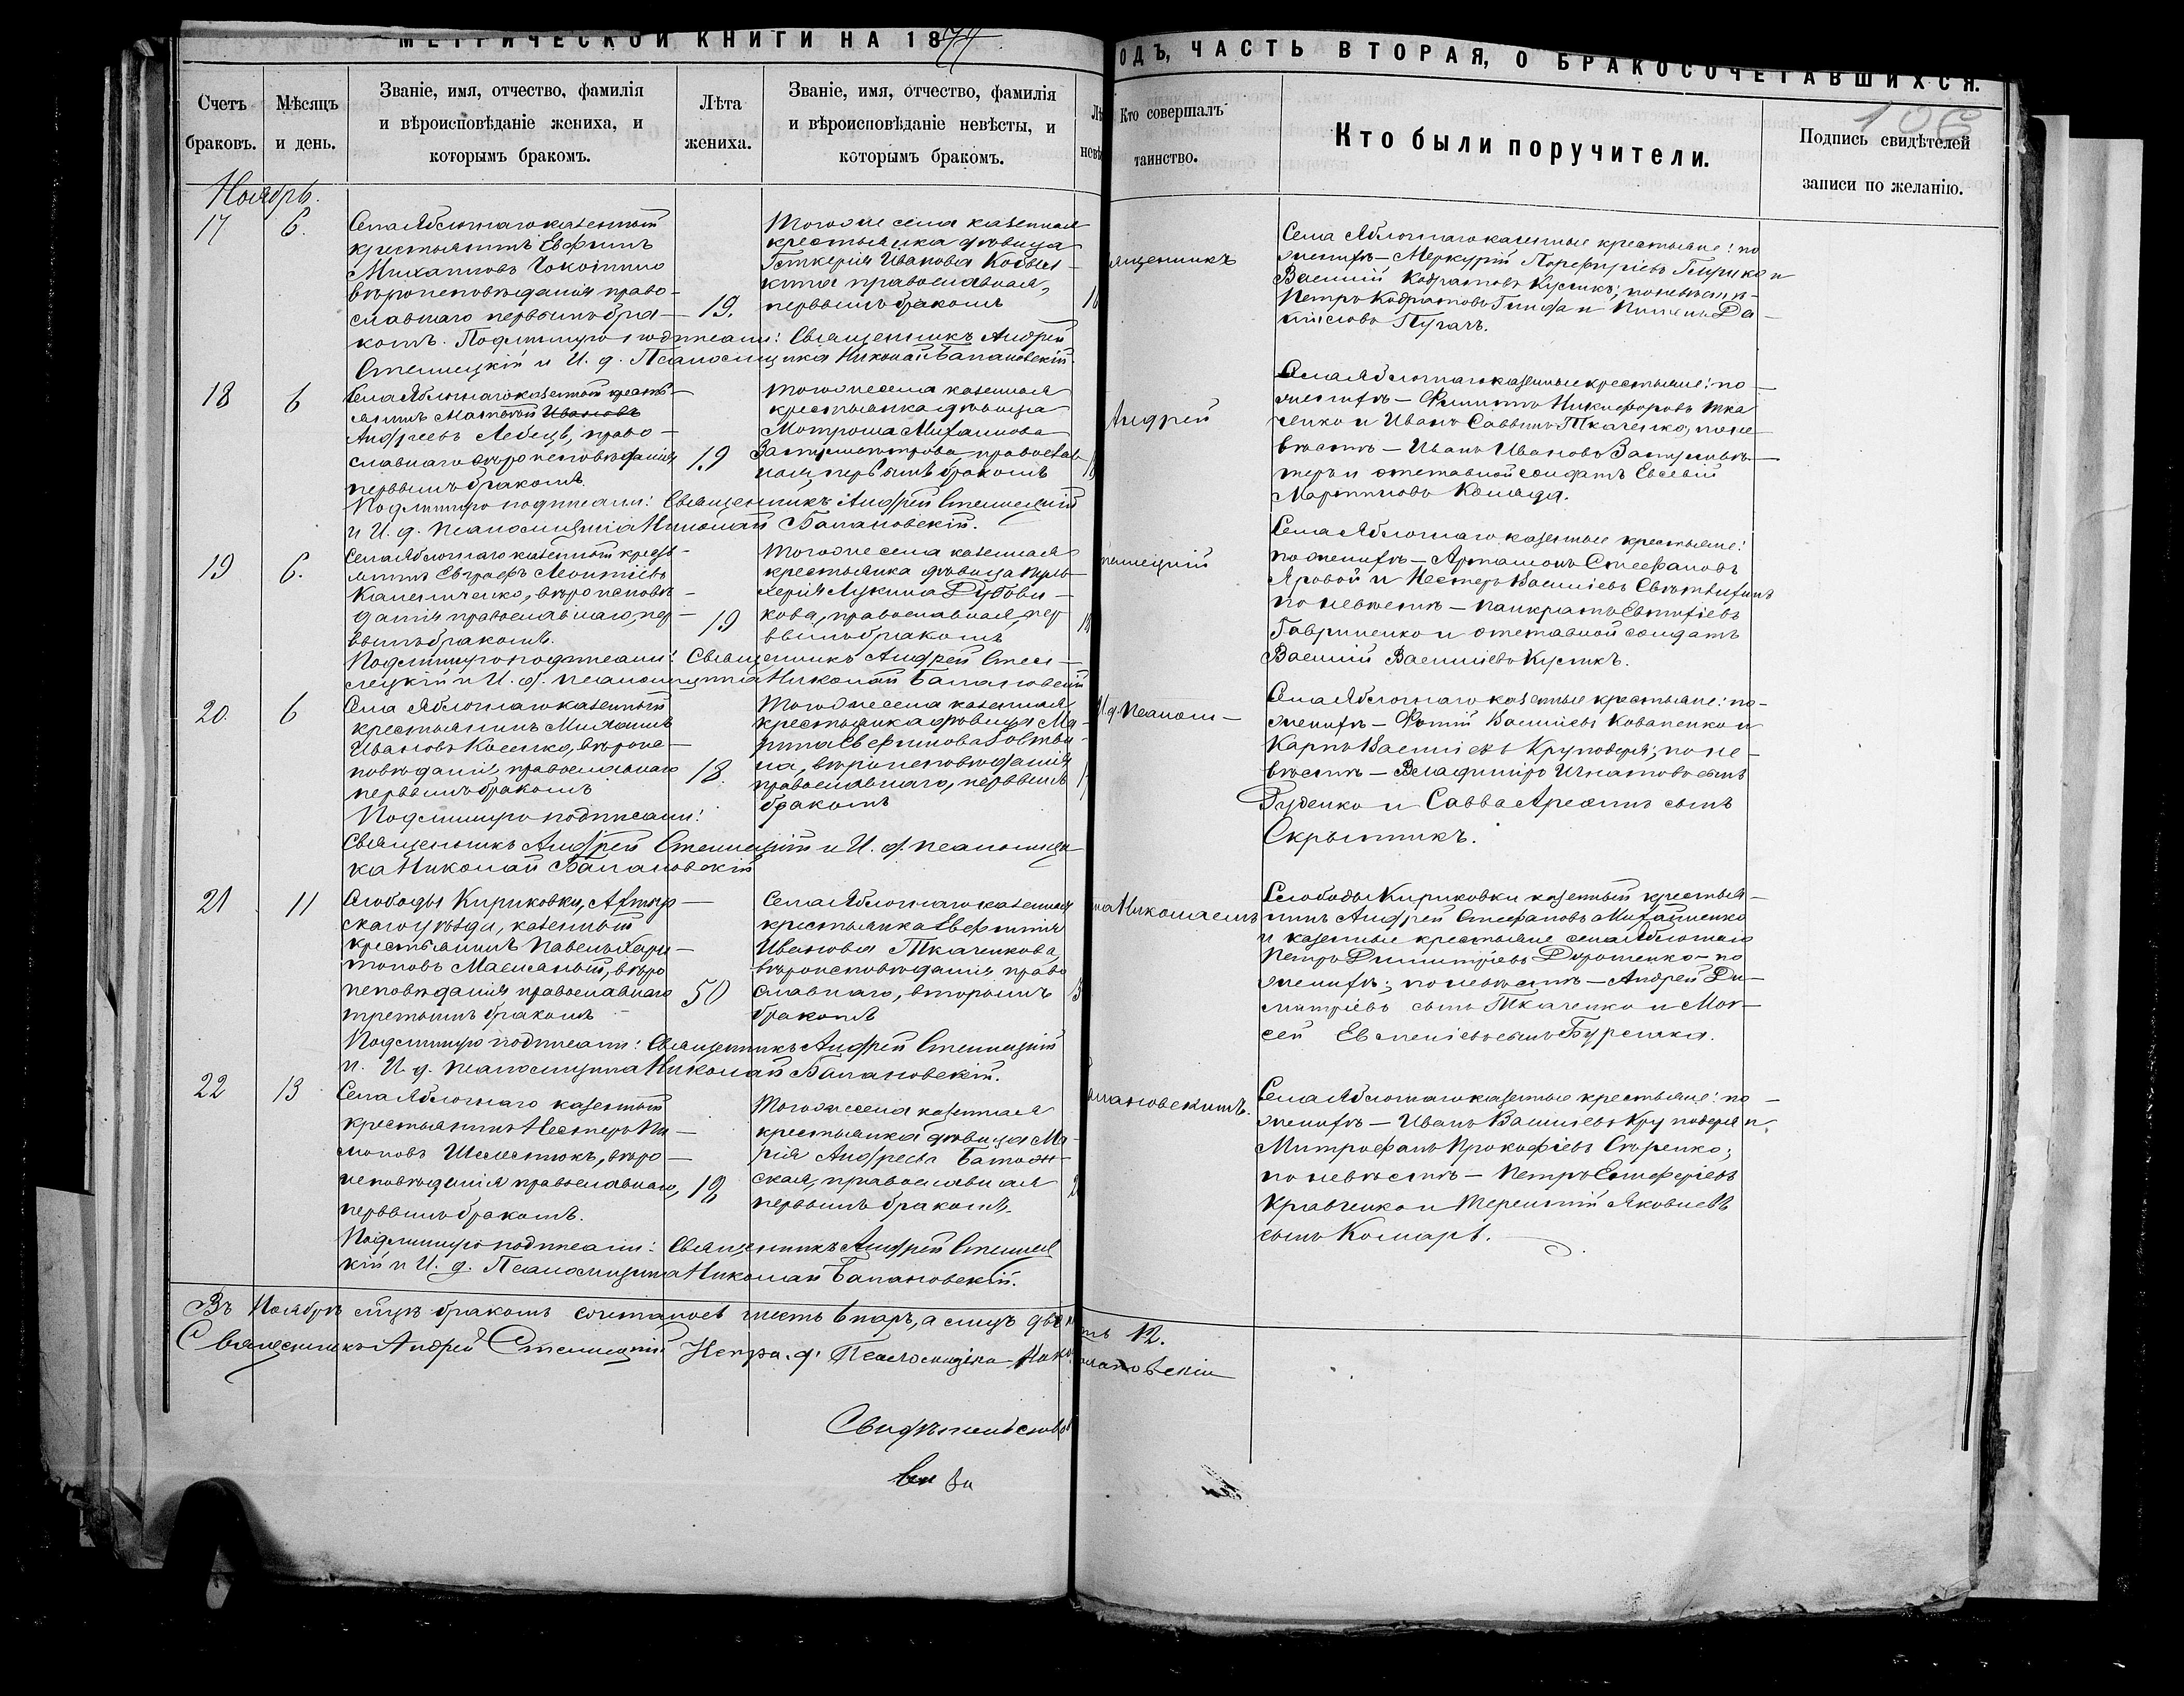 МЕТРИЧЕСКОЙ КНИГИ НА 1877
ОДЪ, ЧАСТЬ ВТОРАЯ, О БРАКОСОЧЕТАВШИХСЯ.
106
Счетъ браковъ.
Мѣсяцъ и день.
Званіе, имя, отчество, фамилія
и вѣроисповѣданіе жениха, и
которымъ бракомъ.
Лѣта
жениха.
Званіе, имя, отчество, фамилія
и вѣроисповѣданіе невѣсты, и
которымъ бракомъ.
Кто совершалъ
таинство.
Кто были поручители.
Подпись свидѣтелей
записи по желанію.
Ноябрь.
17
6.
Села Яблочнаго казенный
крестьянинъ Ефимъ
Михаиловъ
вѣроисповѣданія право-
славнаго первымъ бра-
комъ. Подлинную подписали: Священникъ Андрей
Стеллецкій и И. д. Псаломщика Николай Балановскій.
19.
Тогоже села казенная
крестьянка дѣвица
Гликерія Иванова
православная,
первымъ бракомъ
ященникъ
Села Яблочнаго казенные крестьяне: по
женихѣ — Меркурій Порфиріевъ
Василій Кодратовъ Кусикъ; по невѣстѣ
Петръ Кодратовъ и Да-
ниловъ Пугачъ.
18
6
Села Яблочнаго казенный кресть-
янинъ Матвѣй Ивановъ
Андреевъ Лебедь, право-
славнаго вѣроисповѣданія
первымъ бракомъ.
Подлинную подписали: Священникъ Андрей Стеллецкій
и И. д. псаломщика Николай Балановскій.
19
Тогоже села казенная
крестьянка дѣвица
Матрона Михаилова
православ-
ная, первымъ бракомъ
Андрей
Села Яблочнаго казенные крестьяне: по-
женихѣ — Филиппъ Никифоровъ Тка
ченко и Иванъ Саввинъ Ткаченко, по не-
вѣстѣ — Иванъ Ивановъ
и отставной солдатъ Евсевій
Мартиновъ Коляда.
19
6.
Села Яблочнаго казенный кресть-
янинъ Евграфъ Леонтіевъ
Калениченко, вѣроисповѣ-
данія православнаго, пер-
вымъ бракомъ.
Подлинную подписали: Священникъ Андрей Стел-
лецкій и И. д. псаломщика Николай Балановскій
19
Тогоже села казенная
крестьянка дѣвица Пуль-
херія Лукина Дубови-
кова, православная, пер
вымъ бракомъ
теллецкій
Села Яблочнаго казенные крестьяне:
по женихѣ — Артамонъ Стефановъ
Яровой и Нестеръ Василіевъ
по невѣстѣ — Панкратъ Евтихіевъ
Гавриленко и отставной солдатъ
Василій Василіевъ Кусикъ.
20.
6
Села Яблочнаго казенный
крестьянинъ Михаилъ
Ивановъ Косенко, вѣроис-
повѣданія православнаго
первымъ бракомъ
Подлинную подписали:
Священникъ Андрей Стеллецкій и И. д. псаломщи-
ка Николай Балановскій
18.
Тогоже села казенная
крестьянка дѣвица Ма-
рина Евфимова
вѣроисповѣданія
православнаго, первымъ
бракомъ
И. д. Псалом-
Села Яблочнаго казенные крестьяне: по-
женихѣ — Фотій Василіевъ Коваленко и
Карпъ Василіевъ Круподеря; по не-
вѣстѣ — Владиміръ Игнатовъ сынъ
Гуденко и Савва Арсенинъ сынъ
Скрынникъ.
21
11
Слободы Кириковки, Ахтыр-
скаго уѣзда, казенный
крестьянинъ Павелъ Хари-
тоновъ вѣро
исповѣданія православнаго
третьимъ бракомъ
Подлинную подписали: Священникъ Андрей Стеллецкій
и И. д. псаломщика Николай Балановскій.
50
Села Яблочнаго казенная
крестьянка Евфимія
Иванова Ткаченкова
вѣроисповѣданія право
славнаго, вторымъ
бракомъ
ка Николаемъ
Слободы Кириковки казенный крестья-
нинъ Андрей Стефановъ Михайленко
и казенные крестьяне села Яблочнаго
Петръ Димитріевъ Дорошенко — по
женихѣ; по невѣстѣ — Андрей Ди-
митріевъ сынъ Ткаченко и Мои-
сей сынъ Бурлака.
22
13
Села Яблочнаго казенный
крестьянинъ Нестеръ Фи-
моновъ Шелестюкъ, вѣро-
исповѣданія православнаго,
первымъ бракомъ.
Подлинную подписали: Священникъ Андрей Стеллец
кій и И. д. Псаломщика Николай Балановскій.
Тогоже села казенная
крестьянка дѣвица Ма-
рія Андреева
ская, православная
первымъ бракомъ.
алановскимъ.
Села Яблочнаго казенные крестьяне: по-
женихѣ — Иванъ Василіевъ Круподеря и
Митрофанъ Прокофіевъ
по невѣстѣ — Петръ Елиферіевъ
Кравченко и Терентій Яковлевъ
сынъ Комаръ.
Въ Ноябрѣ м̃цѣ бракомъ сочеталось шесть 6 паръ, а лицъ двѣн
ть 12.
Священникъ Андрей Стеллецкій Испра. д. Псаломщика Нико
алановскій
Свидѣтельство